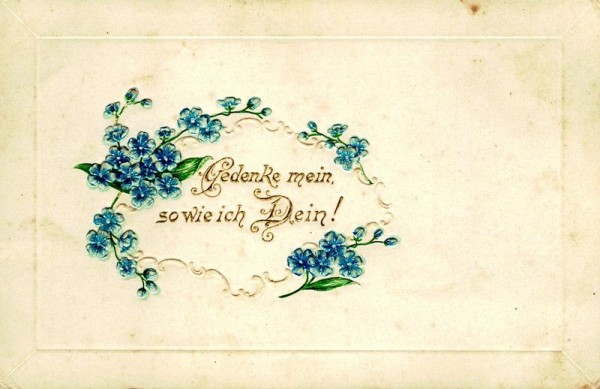 Gedenke mein,
so wie ich Dein!